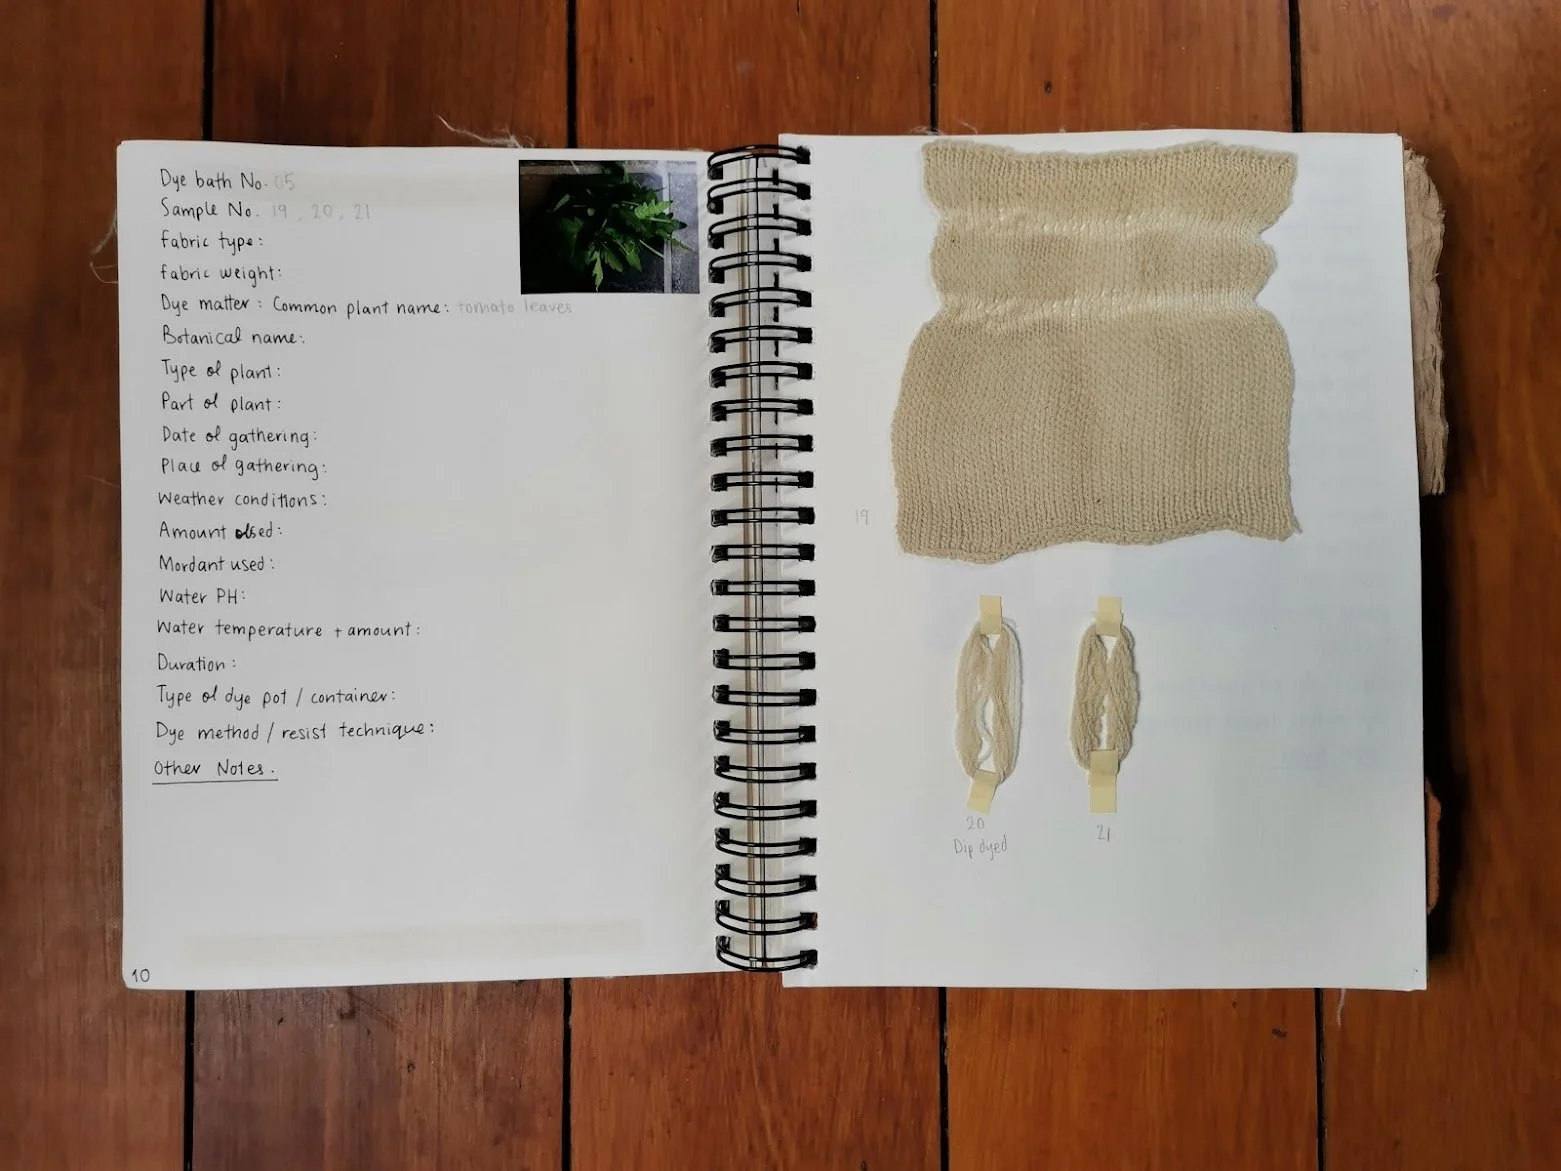 Dye bath No. 05
Sample No. 19, 20, 21
Fabric type:
Fabric weight:
Dye matter: Common plant name: tomato leaves
Botanical name:
Type of plant:
Part of plant:
Date of gathering:
Place of gathering:
Weather conditions:
Amount used:
Mordant used:
Water PH:
Water temperature + amount:
Duration:
Type of dye pot / container:
Dye method / resist technique:
Other Notes.
10
19
20
Dip dyed
21